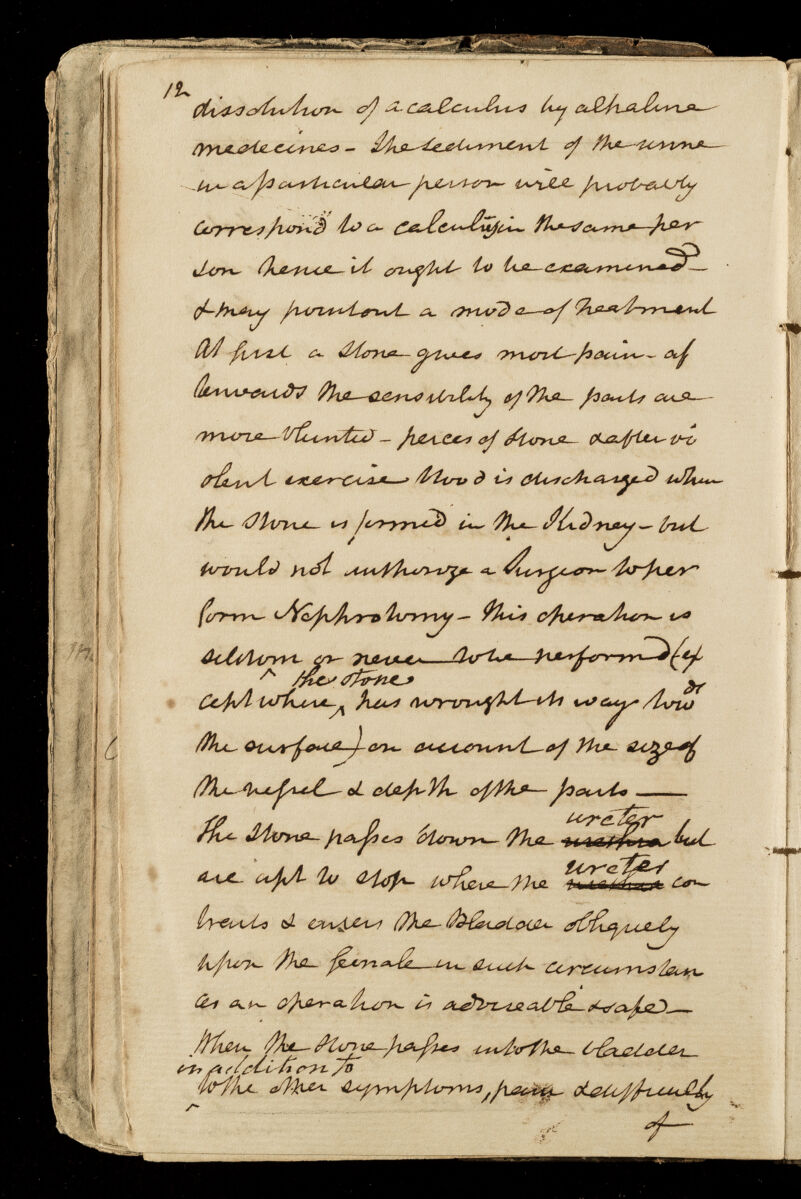 12
dissolution of a calculus by alkaline
medecines - The sediment of the urine
in a particular person will probably
correspond to a calculus in the same per
son hence it ought to be examined -
& may point out a mode of treatment
At first a stone gives most pain - af
terwards the sensibility of the parts are
more blunted - peices of stone & after vi
olent exercise blood is discharged when
the stone is formed in the Kidney - but
would not authorize a Surgeon to per
form Nephrotomy - This operation is
seldom or never to be performed (ex
the stone
cept where ^ has wrought its way towds
the surface) on account of the size of
the vessel & depth of the parts —
ureter
The stone passes down the urethra but
ureter
are apt to stop where the urethra con
tracts & enters the Bladder obliquely
upon the female in such circumstan
ces an operation is adviseable & safe -
When the stone passes into the bladder
in addition to
^ to the other symptoms, pain & difficulty
of